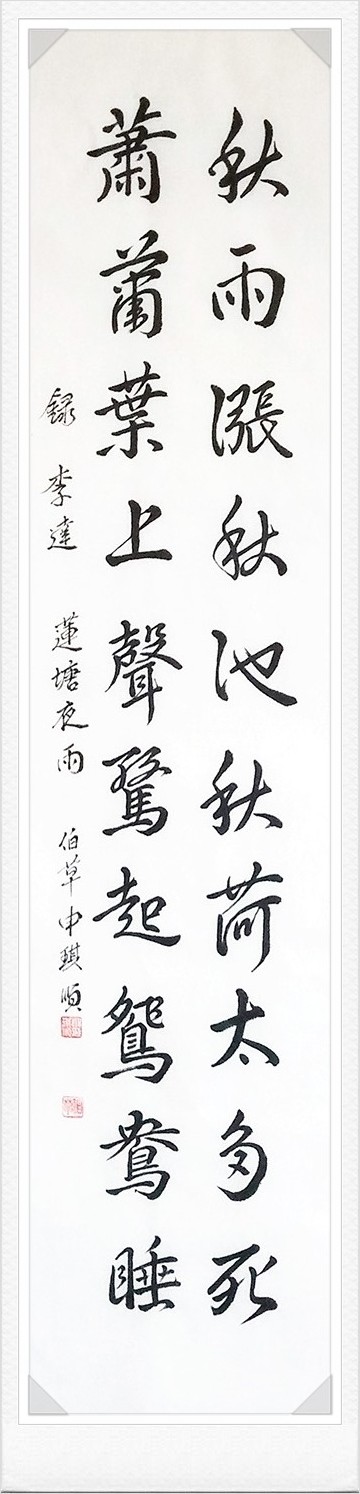 秋雨漲秋池秋荷太多死
蕭蕭葉上聲驚起鴛鴦睡
錄 李達 蓮塘夜雨 伯草申琪順